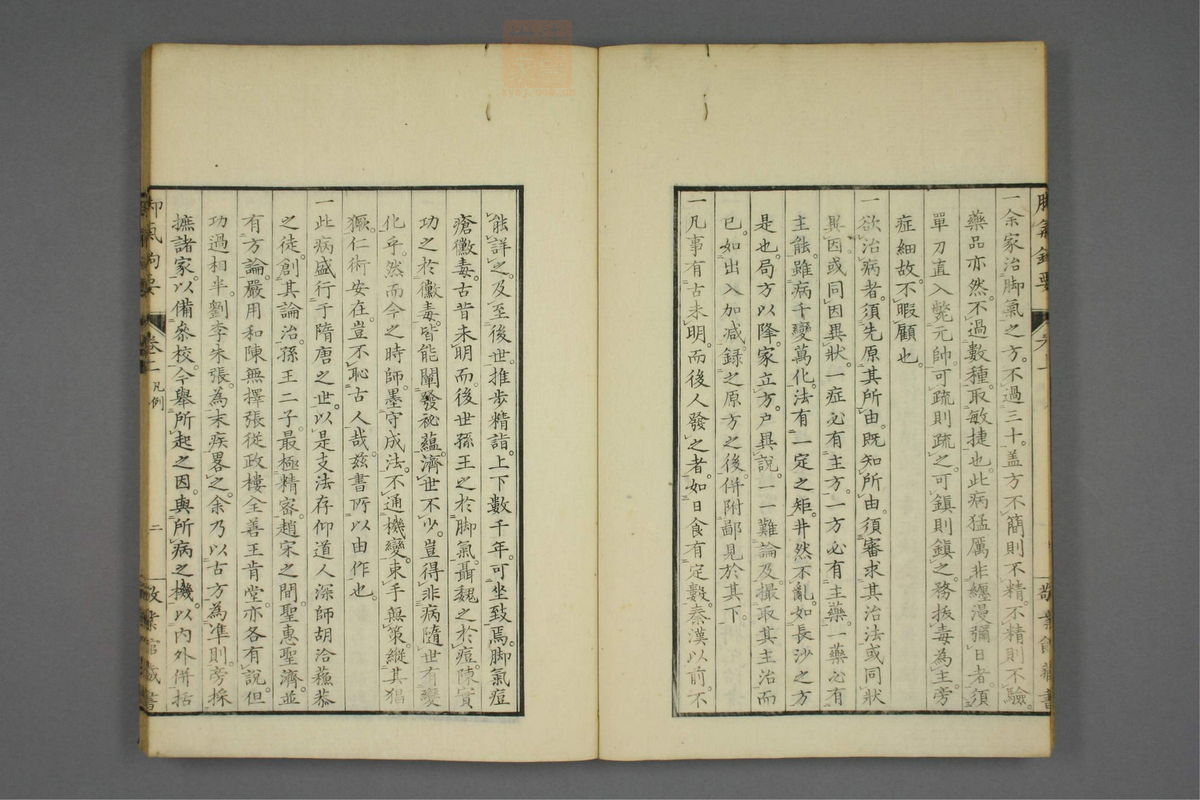 一余家治脚氣之方不過三十。盖方不簡則不精。不精則不驗。
藥品亦然。不過數種。取敏捷也。此病猛厲非纏漫彌日者。須
單刀直入斃元帥。可疏則疏之。可鎮則鎮之。務拔毒為主。旁
症細故。不暇顧也。
一欲治病者。須先原其所由。既知所由。須審求其治法或同狀
異因。或同因異狀。一症必有主方。一方必有主藥。一藥必有
主能。雖病千變萬化。法有一定之矩。井然不亂。如長沙之方
是也。局方以降。家立方。户異說。一一難論及。撮取其主治而
已。如出入加减。録之原方之後。併附鄙見於其下。
一凡事有古未明。而後人發之者。如日食有定數。秦漢以前。不
能詳之。及至後世。推步精詣。上下數千年。可坐致焉。脚氣痘
瘡黴毒。古昔未明。而後世孫王之於脚氣。聶魏之於痘。陳實
功之於黴毒。皆能闡發祕蘊。濟世不少。豈得非病隨世有變
化乎。然而今之時師。墨守成法。不通機變。束手無策。縱其猖
獗。仁術安在。豈不恥古人哉。兹書所以由作也。
一此病盛行于隋唐之世。以是支法存仰道人深師胡洽蘓恭
之徒。創其論治。孫王二子。最極精審。趙宋之間。聖惠聖濟。並
有方論。嚴用和陳無擇張從政樓全善王肯堂。亦各有說。但
功過相半。劉李朱張。為末疾畧之。余乃以古方為準則。旁採
摭諸家。以備叅校。今舉所起之因與所病之機。以內外併括
卷一 凡例
二